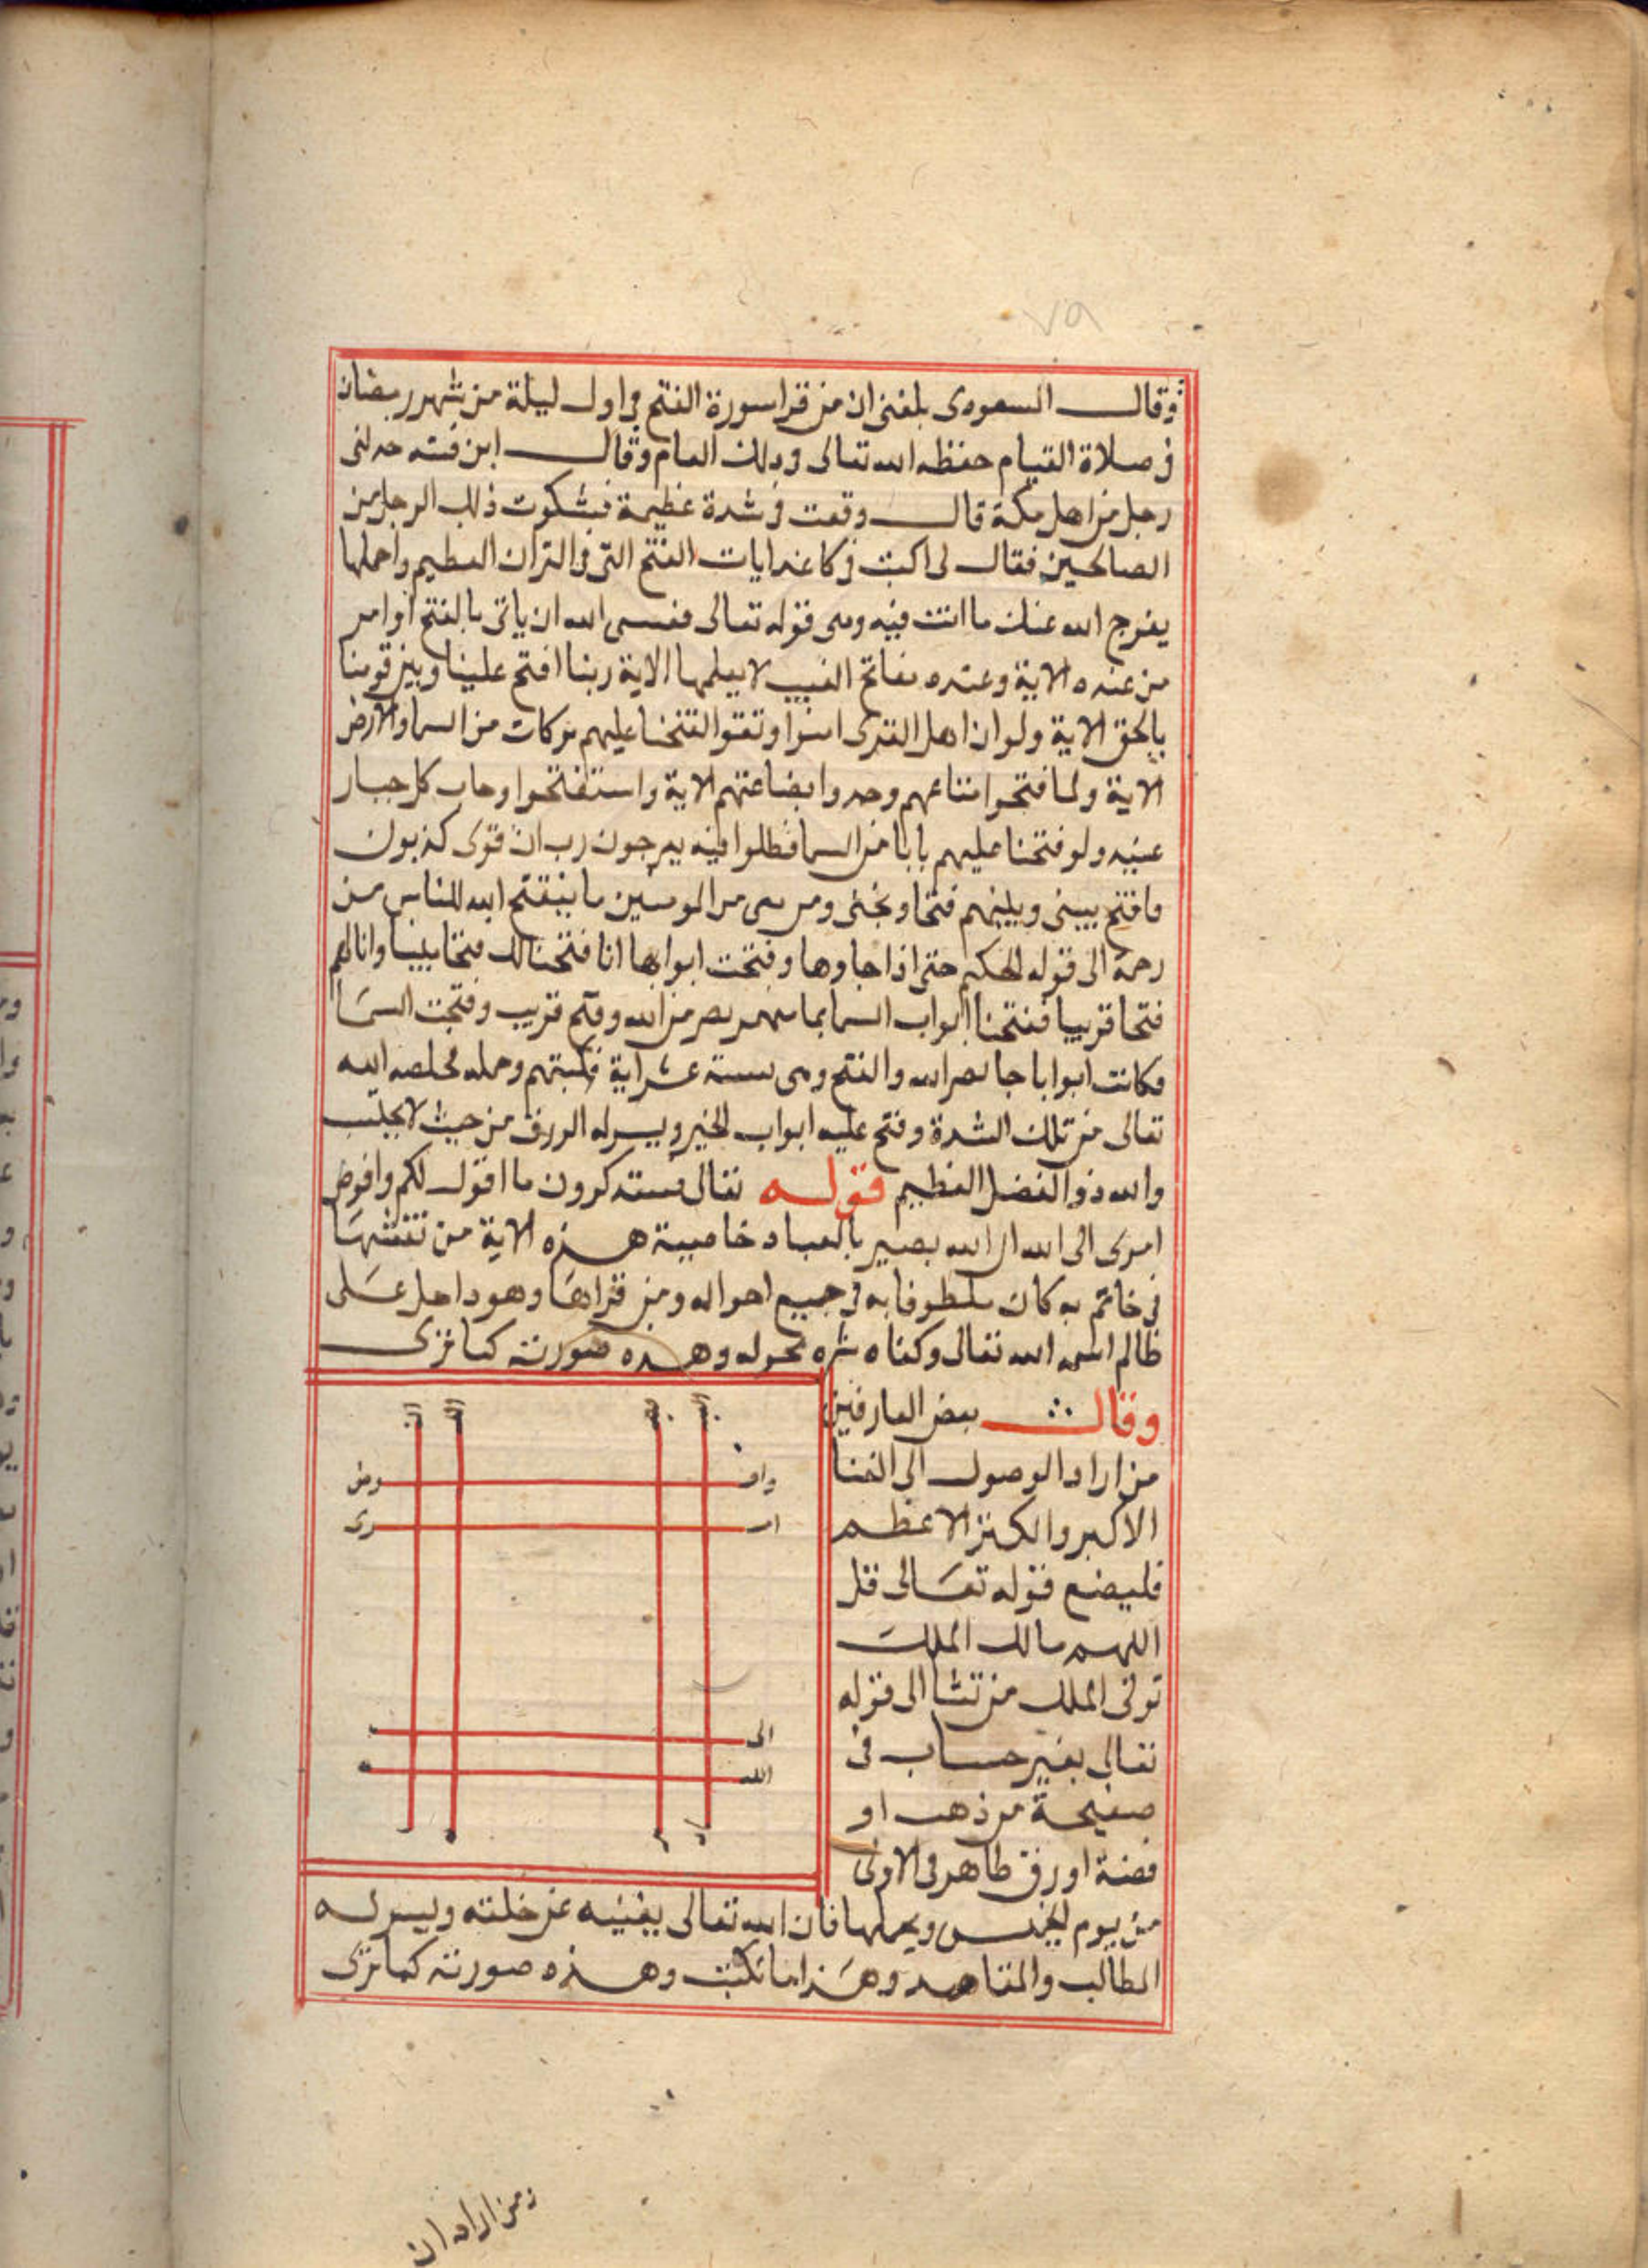 ٧٩
وقال السعودى بلغنى ان من قرا سورة الفتح فى اول ليلة من شهر رمضان
فى صلاة القيام حفظه الله تعالى فى ذلك العام وقال ابن قتيبه حدثنى
رجل من اهل مكة قال وقعت فى شدة عظيمة فشكوت ذلك الرجل من
الصالحين فقال لى اكتب فى كاغد ايات الفتح التى فى القران العظيم واحملها
يفرج الله عنك ما انت فيه وهى قوله تعالى فعسى الله ان ياتى بالفتح او امر
من عنده الاية وعنده مفاتح الغيب لا يعلمها الاية ربنا افتح علينا وبين قومنا
بالحق الاية ولو ان اهل القرى امنوا وتقوا لفتحنا عليهم بركات من السما والارض
الاية ولما فتحوا متاعهم وجدوا بضاعتهم الاية واستفتحوا وخاب كل جبار
عنيد ولو فتحنا عليهم بابا من السما فظلوا فيه يعرجون رب ان قومى كذبون
فافتح بينى وبينهم فتحا ونجنى ومن معى من المومنين ما يفتح الله للناس من
رحمة الى قوله الحكيم حتى اذا جاوها وفتحت ابوابها انا فتحنا لك فتحا مبينا واثابهم
فتحا قريبا ففتحنا ابواب السما بما منهمر نصر من الله وفتح قريب وفتحت السما
فكانت ابوابا جا نصر الله والفتح وهى ستة عشر اية فكتبتهم وحمله فخلصه الله
تعالى من تلك الشدة وفتح عليه ابواب الخير ويسر له الرزق من حيث لا يحتسب
والله ذو الفضل العظيم قوله تعالى فستذكرون ما اقول لكم وافوض
امرى الى الله ان الله بصير بالعباد خاصية هذه الاية من نقشها
فى خاتم به كان ملطوفا به فى جميع احواله ومن قراها وهو داخل على
ظالم امنه الله تعالى وكفاه شره بحوله وهذه صورته كما ترى
وقال بعض العارفين
من اراد الوصول الى الغنا
الاكبر والكنز الاعظم
فليضع قوله تعالى قل
اللهم مالك الملك
توتى الملك من تشا الى قوله
تعالى بغير حساب فى
صفيحة من ذهب او
فضة او رق طاهر فى الاولى
من يوم الخميس ويحملها فان الله تعالى يغنيه عن خلقه وييسر له
المطالب والمقاصد وهذا ما تكتب وهذه صورته كما ترى
واف وض
امـ رى
الى
الله
ومن اراد ان